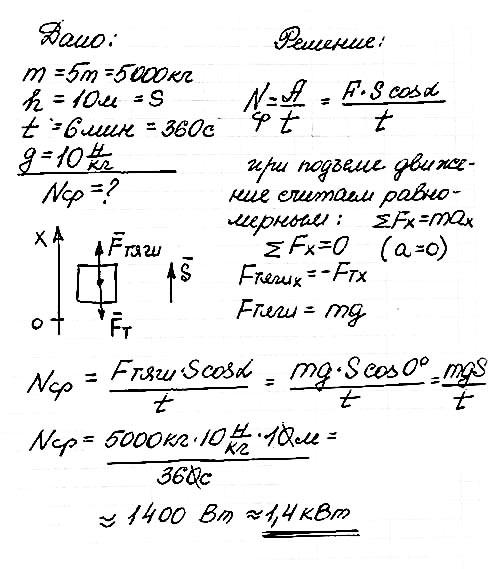 Дано:
m = 5т = 5000кг
h = 10м = S
t = 6мин = 360с
g = 10 Н/кг
Nср = ?
Решение:
Nср = A/t = F·S cosα/t
при подъеме движе-
ние считаем равно-
мерным: ΣFx = max
ΣFx = 0 (a = 0)
Fтягиx = -Fтx
Fтяги = mg
X
F̄тяги
S̄
O
F̄т
Nср = Fтяги·S cosα/t = mg·S cos0°/t = mgS/t
Nср = 5000кг·10 Н/кг·10м/360с =
≈ 1400 Вт ≈ 1,4 кВт